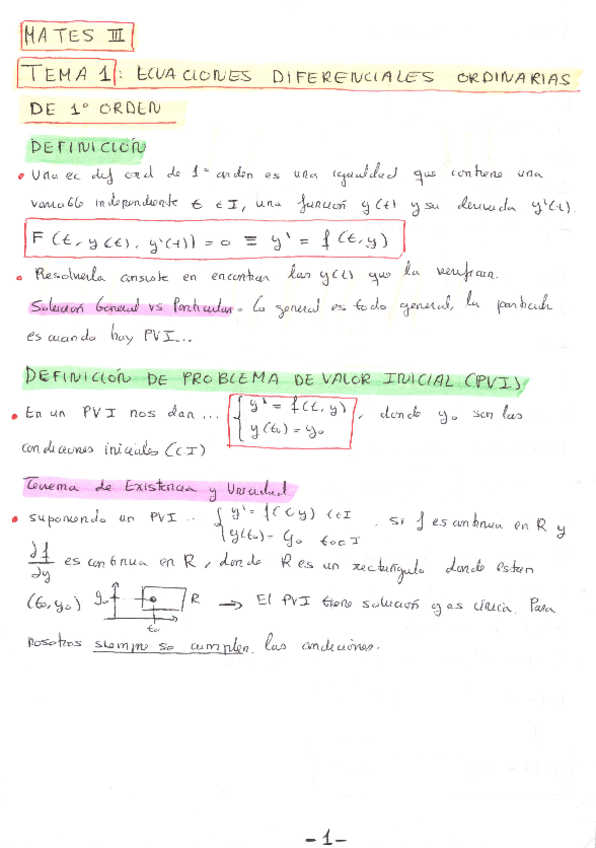 MATES III
TEMA 1: ECUACIONES DIFERENCIALES ORDINARIAS
DE 1º ORDEN
DEFINICIÓN
• Una ec dif ord de 1er orden es una igualdad que contiene una
variable independiente t ∈ I, una función y(t) y su derivada y'(t).
F(t, y(t), y'(t)) = 0 ≡ y' = f(t,y)
• Resolverla consiste en encontrar las y(t) que la verifican.
Solución General vs Particular. La general es todo general, la particular
es cuando hay PVI...
DEFINICIÓN DE PROBLEMA DE VALOR INICIAL (PVI)
• En un PVI nos dan ... { y' = f(t,y), donde y₀ son las
y(t₀) = y₀
condiciones iniciales (CI)
Teorema de Existencia y Unicidad
• suponiendo un PVI .. { y' = f(t,y) t∈I . Si f es continua en R y
y(t₀) = y₀ t₀∈I
∂f/∂y es continua en R, donde R es un rectángulo donde estan
(t₀,y₀) y₀ R → El PVI tiene solución y es única. Para
t₀
nosotros siempre se cumplen las condiciones.
-1-